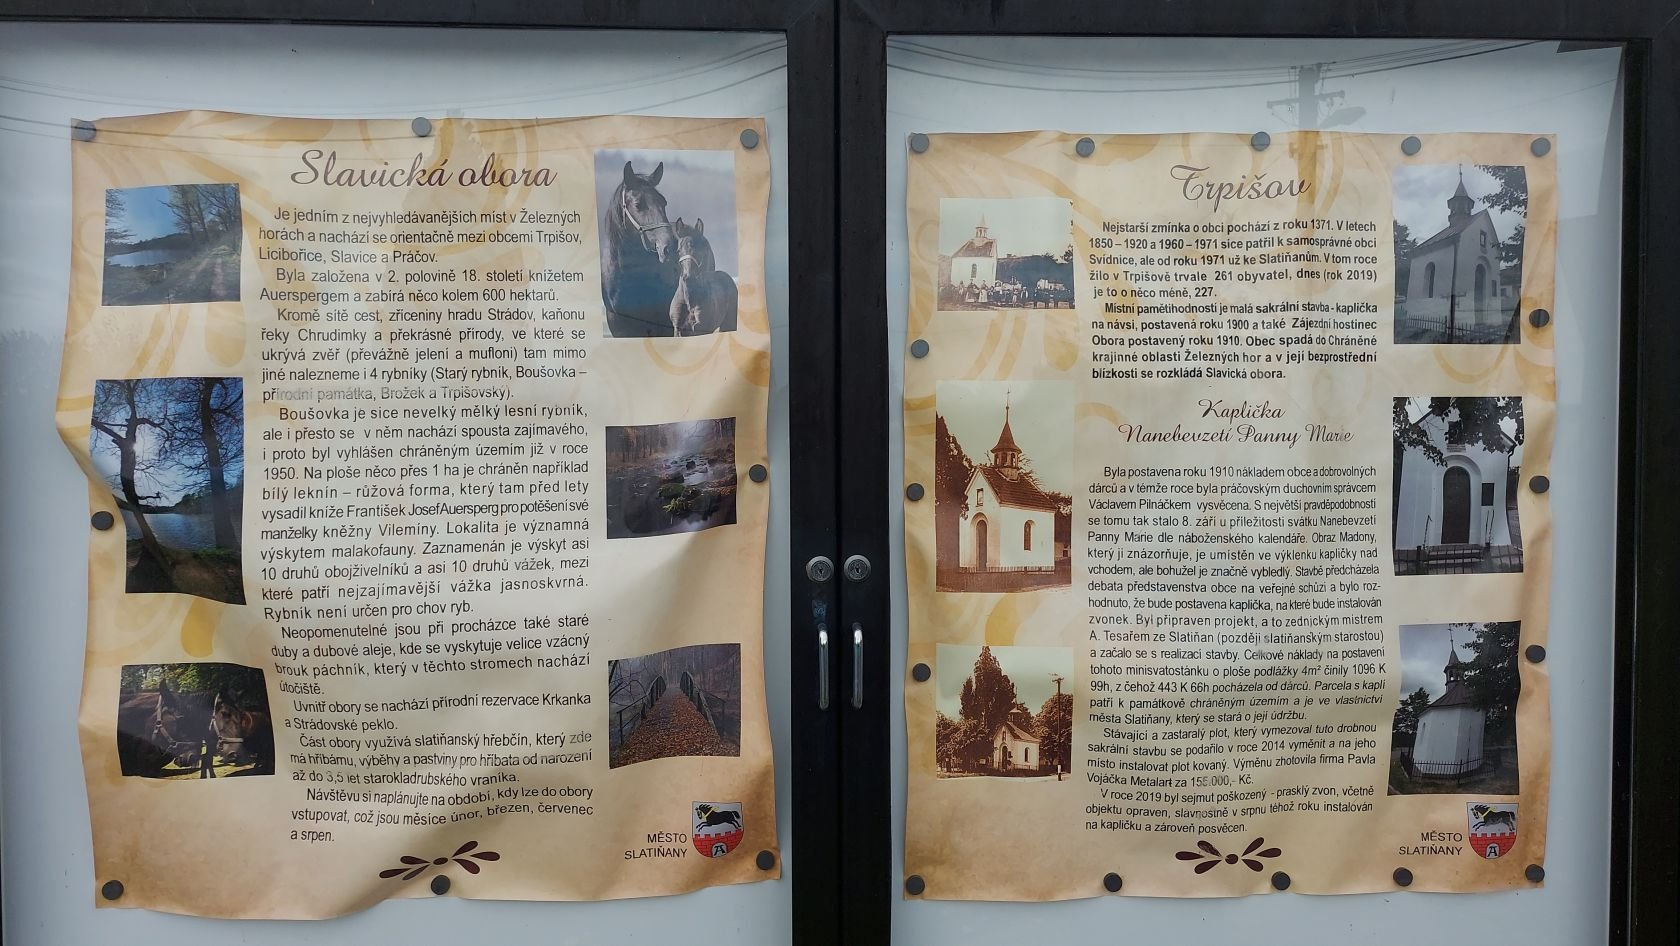 Slavická obora
Je jedním z nejvyhledávanějších míst v Železných
horách a nachází se orientačně mezi obcemi Trpišov,
Licibořice, Slavice a Práčov.
Byla založena v 2. polovině 18. století knížetem
Auerspergem a zabírá něco kolem 600 hektarů.
Kromě sítě cest, zříceniny hradu Strádov, kaňonu
řeky Chrudimky a překrásné přírody, ve které se
ukrývá zvěř (převážně jelení a mufloni) tam mimo
jiné nalezneme i 4 rybníky (Starý rybník, Boušovka –
přírodní památka, Brožek a Trpišovský).
Boušovka je sice nevelký mělký lesní rybník,
ale i přesto se v něm nachází spousta zajímavého,
i proto byl vyhlášen chráněným územím již v roce
1950. Na ploše něco přes 1 ha je chráněn například
bílý leknín – růžová forma, který tam před lety
vysadil kníže František Josef Auersperg pro potěšení své
manželky kněžny Vilemíny. Lokalita je významná
výskytem malakofauny. Zaznamenán je výskyt asi
10 druhů obojživelníků a asi 10 druhů vážek, mezi
které patří nejzajímavější vážka jasnoskvrná.
Rybník není určen pro chov ryb.
Neopomenutelné jsou při procházce také staré
duby a dubové aleje, kde se vyskytuje velice vzácný
brouk páchník, který v těchto stromech nachází
útočiště.
Uvnitř obory se nachází přírodní rezervace Krkanka
a Strádovské peklo.
Část obory využívá slatiňanský hřebčín, který zde
má hříbárnu, výběhy a pastviny pro hříbata od narození
až do 3,5 let starokladrubského vraníka.
Návštěvu si naplánujte na období, kdy lze do obory
vstupovat, což jsou měsíce únor, březen, červenec
a srpen.
MĚSTO
SLATIŇANY
A
Trpišov
Nejstarší zmínka o obci pochází z roku 1371. V letech
1850 – 1920 a 1960 – 1971 sice patřil k samosprávné obci
Svídnice, ale od roku 1971 už ke Slatiňanům. V tom roce
žilo v Trpišově trvale 261 obyvatel, dnes (rok 2019)
je to o něco méně, 227.
Místní pamětihodností je malá sakrální stavba - kaplička
na návsi, postavená roku 1900 a také Zájezdní hostinec
Obora postavený roku 1910. Obec spadá do Chráněné
krajinné oblasti Železných hor a v její bezprostřední
blízkosti se rozkládá Slavická obora.
Kaplička
Nanebevzetí Panny Marie
Byla postavena roku 1910 nákladem obce a dobrovolných
dárců a v témže roce byla práčovským duchovním správcem
Václavem Pilnáčkem vysvěcena. S největší pravděpodobností
se tomu tak stalo 8. září u příležitosti svátku Nanebevzetí
Panny Marie dle náboženského kalendáře. Obraz Madony,
který ji znázorňuje, je umístěn ve výklenku kapličky nad
vchodem, ale bohužel je značně vybledlý. Stavbě předcházela
debata představenstva obce na veřejné schůzi a bylo roz-
hodnuto, že bude postavena kaplička, na které bude instalován
zvonek. Byl připraven projekt, a to zednickým mistrem
A. Tesařem ze Slatiňan (později slatiňanským starostou)
a začalo se s realizací stavby. Celkové náklady na postavení
tohoto minisvatostánku o ploše podlážky 4m² činily 1096 K
99h, z čehož 443 K 66h pocházela od dárců. Parcela s kaplí
patří k památkově chráněným územím a je ve vlastnictví
města Slatiňany, který se stará o její údržbu.
Stávající a zastaralý plot, který vymezoval tuto drobnou
sakrální stavbu se podařilo v roce 2014 vyměnit a na jeho
místo instalovat plot kovaný. Výměnu zhotovila firma Pavla
Vojáčka Metalart za 155.000,- Kč.
V roce 2019 byl sejmut poškozený - prasklý zvon, včetně
objektu opraven, slavnostně v srpnu téhož roku instalován
na kapličku a zároveň posvěcen.
MĚSTO
SLATIŇANY
A